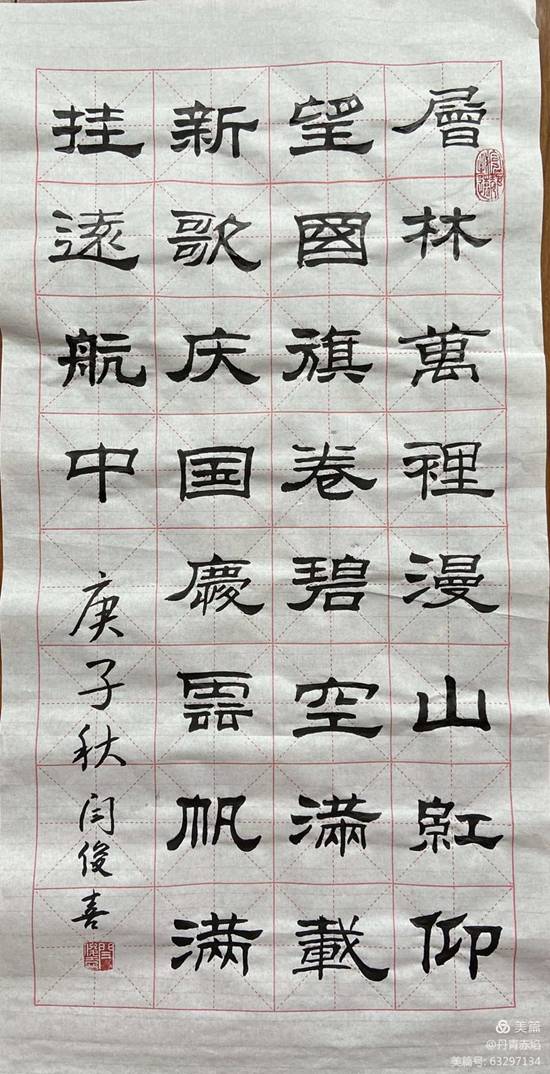 層林萬裡漫山紅仰
望國旗卷碧空滿載
新歌庆国慶雲帆满
挂遠航中
庚子秋闫俊喜
美篇
@丹青赤焰
美篇号: 63297134